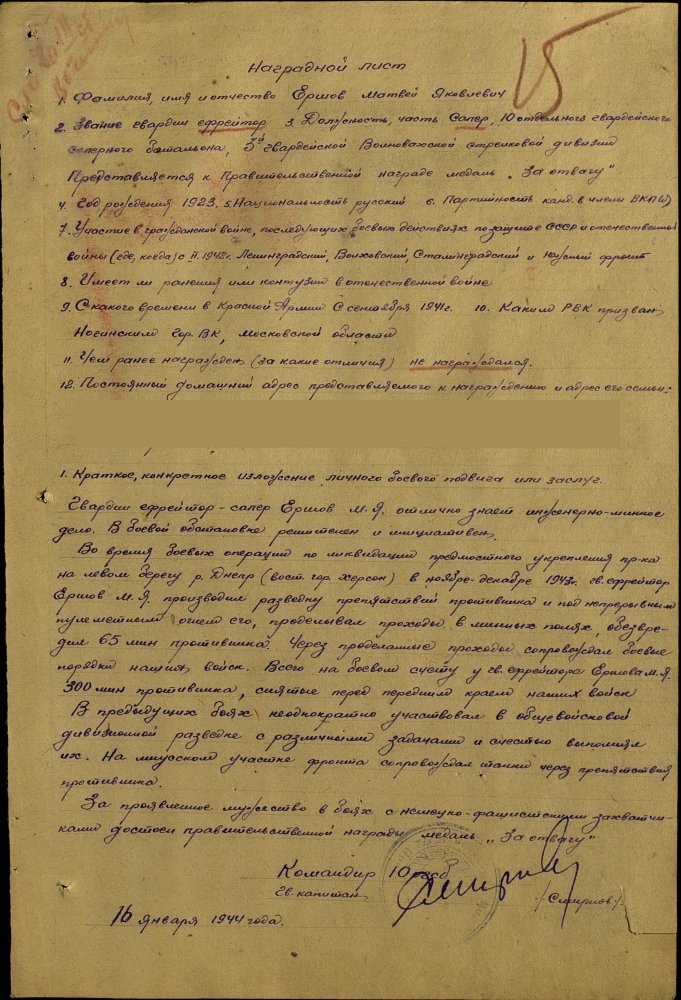 15
Наградной лист
1. Фамилия, имя и отчество Ершов Матвей Яковлевич
2. Звание гвардии ефрейтор 3. Должность, часть Сапер, 10 отдельного гвардейского
саперного батальона, 5й Гвардейской Волновахской стрелковой дивизии
Представляется к Правительственной награде медаль „За отвагу"
4. Год рождения 1923. 5. Национальность русский 6. Партийность канд. в члены ВКП(б)
7. Участие в гражданской войне, последующих боевых действиях по защите СССР и отечественной
войны (где, когда) с 1942г. Ленинградский, Волховский, Сталинградский и Южный фронт
8. Имеет ли ранения или контузии в отечественной войне
9. С какого времени в Красной Армии С сентября 1941г. 10. Каким РВК призван
Ногинским Гор. ВК, Московской области
11. Чем ранее награжден (за какие отличия) не награждался.
12. Постоянный домашний адрес представляемого к награждению и адрес его семьи:
1. Краткое, конкретное изложение личного боевого подвига или заслуг.
Гвардии ефрейтор-сапер Ершов М.Я. отлично знает инженерно-минное
дело. В боевой обстановке решителен и инициативен.
Во время боевых операций по ликвидации предмостного укрепления пр-ка
на левом берегу р. Днепр (вост. гор. Херсон) в ноябре-декабре 1943г. гв. ефрейтор
Ершов М.Я. производил разведку препятствий противника и под непрерывным
пулеметным огнем его, проделывал проходы в минных полях, обезвре-
дил 65 мин противника. Через проделанные проходы сопровождал боевые
порядки наших войск. Всего на боевом счету у гв. ефрейтора Ершова М.Я.
300 мин противника, снятые перед передним краем наших войск
В предыдущих боях неоднократно участвовал в общевойсковой
дивизионной разведке с различными задачами и с честью выполнял
их. На миусском участке фронта сопровождал танки через препятствия
противника.
За проявленное мужество в боях с немецко-фашистскими захватчи-
ками достоен правительственной награды медаль „За отвагу"
Командир 10 огсб
Гв. капитан /Смирнов/.
16 января 1944 года.